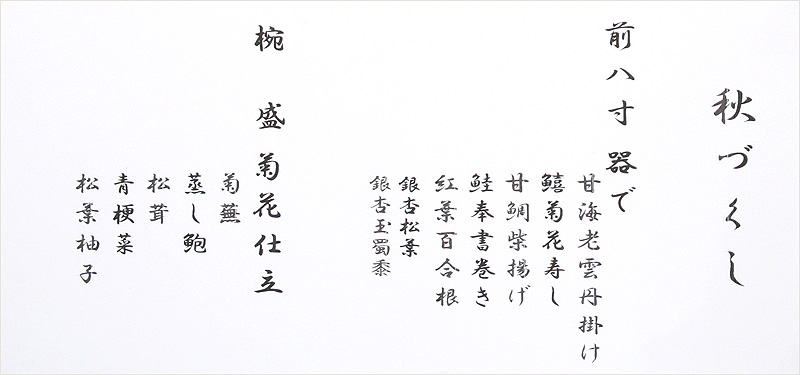 秋づくし
前八寸 器で
甘海老雲丹掛け
鱚菊花寿し
甘鯛柴揚げ
鮭奉書巻き
紅葉百合根
銀杏松葉
銀杏玉蜀黍
椀 盛 菊花仕立
菊蕪
蒸し鮑
松茸
青梗菜
松葉柚子